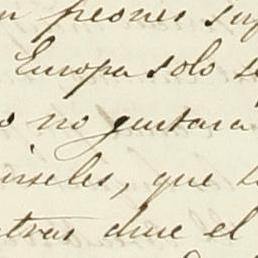 n peones su
Europa solo s
o no gustara
inseles, que
tras dure el